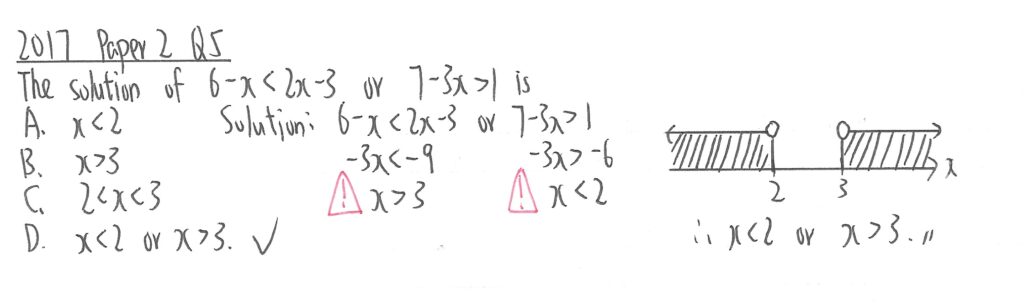 2017 Paper 2 Q5
The solution of 6-x<2x-3 or 7-3x>1 is
A. x<2
B. x>3
C. 2<x<3
D. x<2 or x>3. ✓
Solution: 6-x<2x-3 or 7-3x>1
-3x<-9 -3x>-6
! x>3 ! x<2
2 3 x
∴ x<2 or x>3.〃